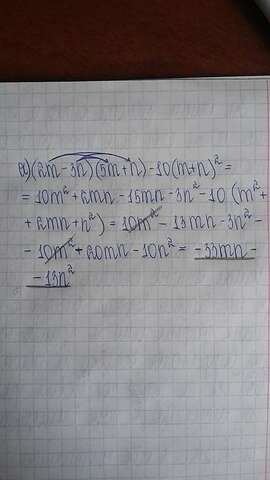 а)(2m-3n)(5m+n)-10(m+n)²=
=10m²+2mn-15mn-3n²-10(m²+
+2mn+n²)=10m²-13mn-3n²-
-10m²+20mn-10n²=-33mn-
-13n²